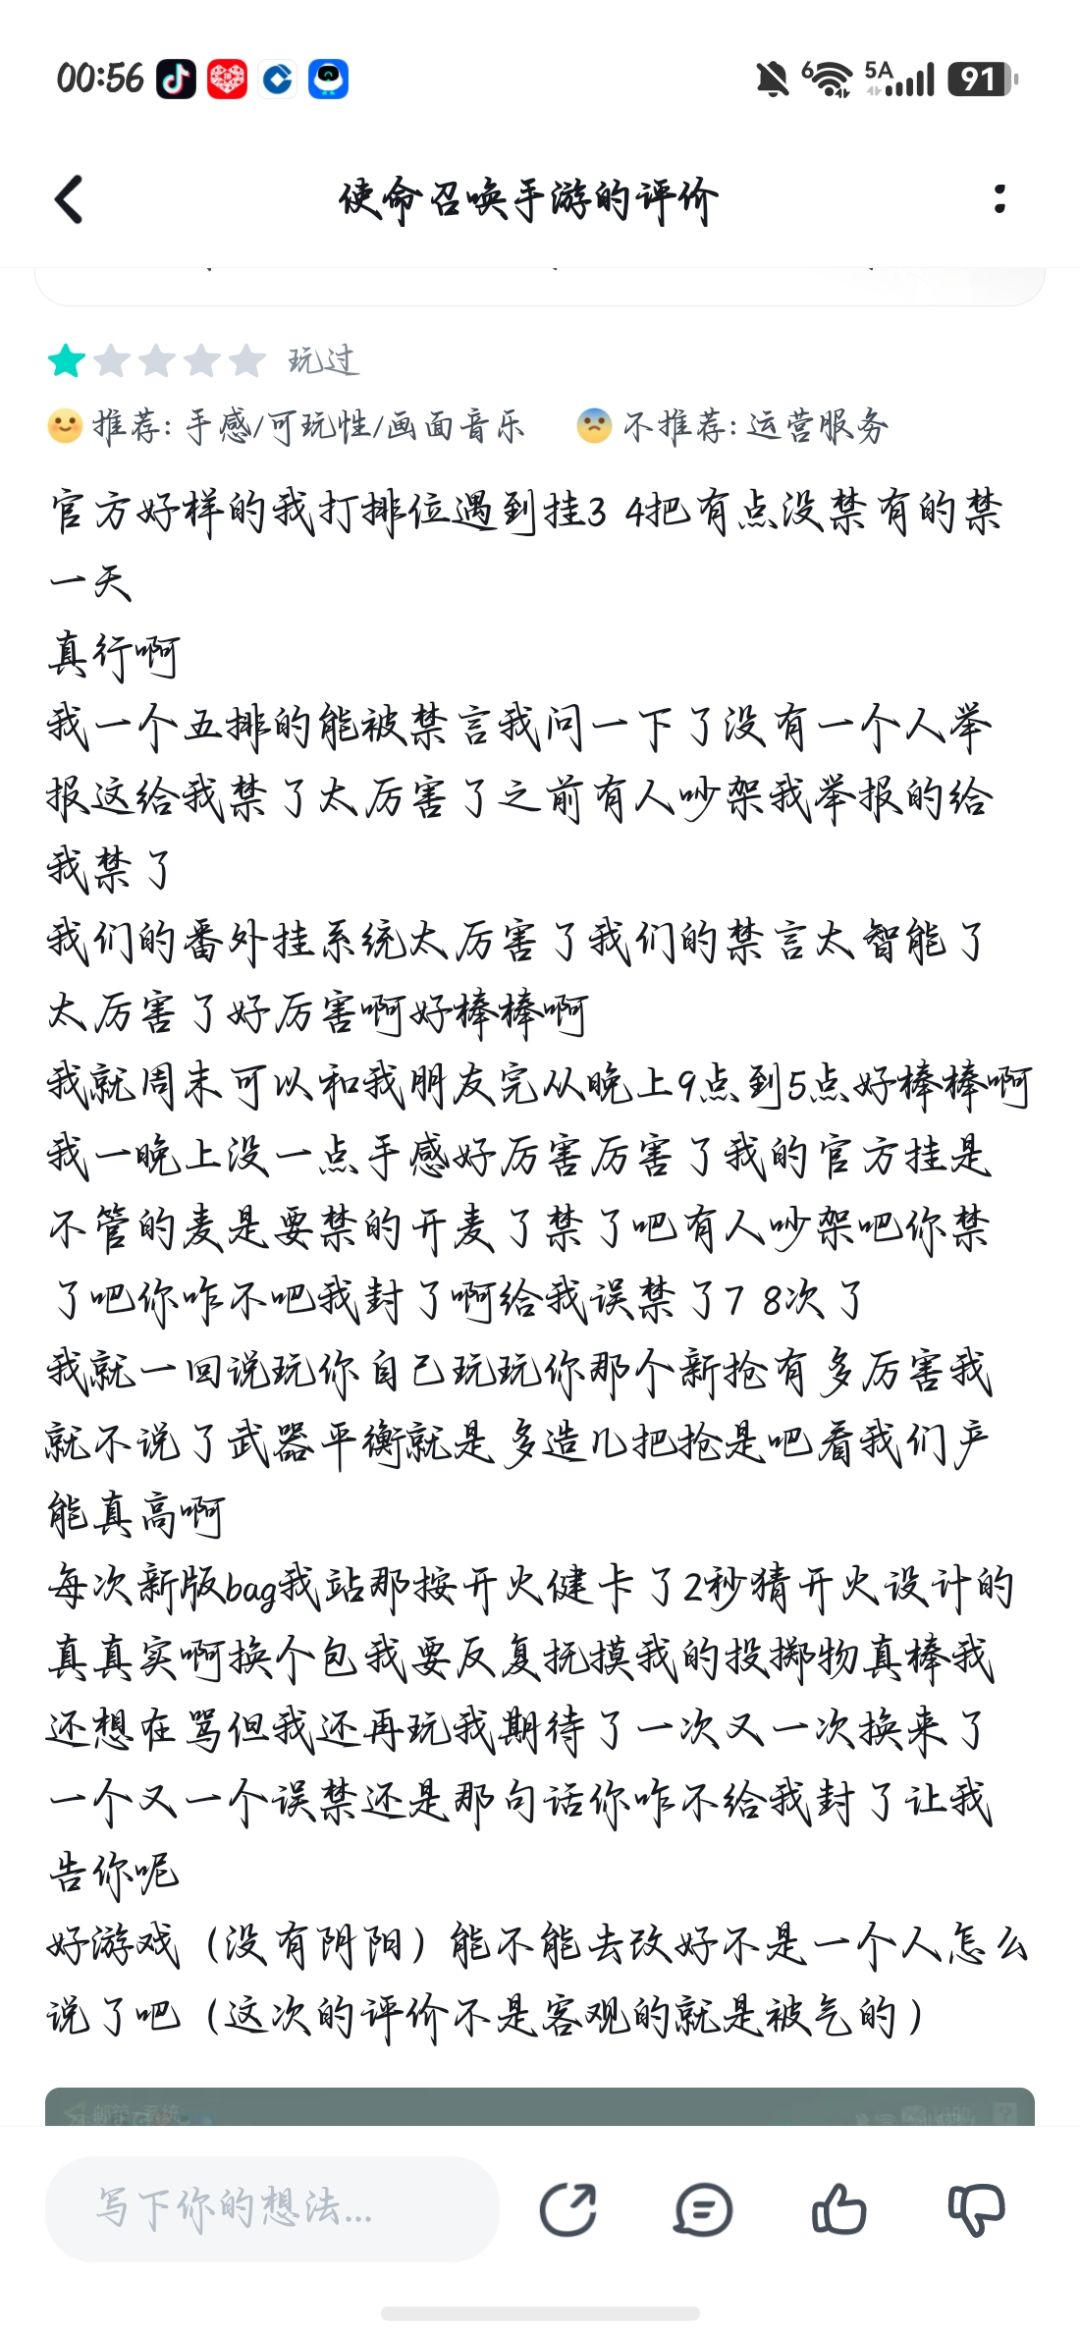 00:56
6
5A
91
使命召唤手游的评价
玩过
推荐: 手感/可玩性/画面音乐 不推荐: 运营服务
官方好样的我打排位遇到挂3 4把有点没禁有的禁
一天
真行啊
我一个五排的能被禁言我问一下了没有一个人举
报这给我禁了太厉害了之前有人吵架我举报的给
我禁了
我们的番外挂系统太厉害了我们的禁言太智能了
太厉害了好厉害啊好棒棒啊
我就周末可以和我朋友完从晚上9点到5点好棒棒啊
我一晚上没一点手感好厉害厉害了我的官方挂是
不管的麦是要禁的开麦了禁了吧有人吵架吧你禁
了吧你咋不吧我封了啊给我误禁了7 8次了
我就一回说玩你自己玩玩你那个新抢有多厉害我
就不说了武器平衡就是多造几把抢是吧看我们产
能真高啊
每次新版bag我站那按开火健卡了2秒猜开火设计的
真真实啊换个包我要反复抚摸我的投掷物真棒我
还想在骂但我还再玩我期待了一次又一次换来了
一个又一个误禁还是那句话你咋不给我封了让我
告你呢
好游戏（没有阴阳）能不能去改好不是一个人怎么
说了吧（这次的评价不是客观的就是被气的）
邮箱-系统
写下你的想法...